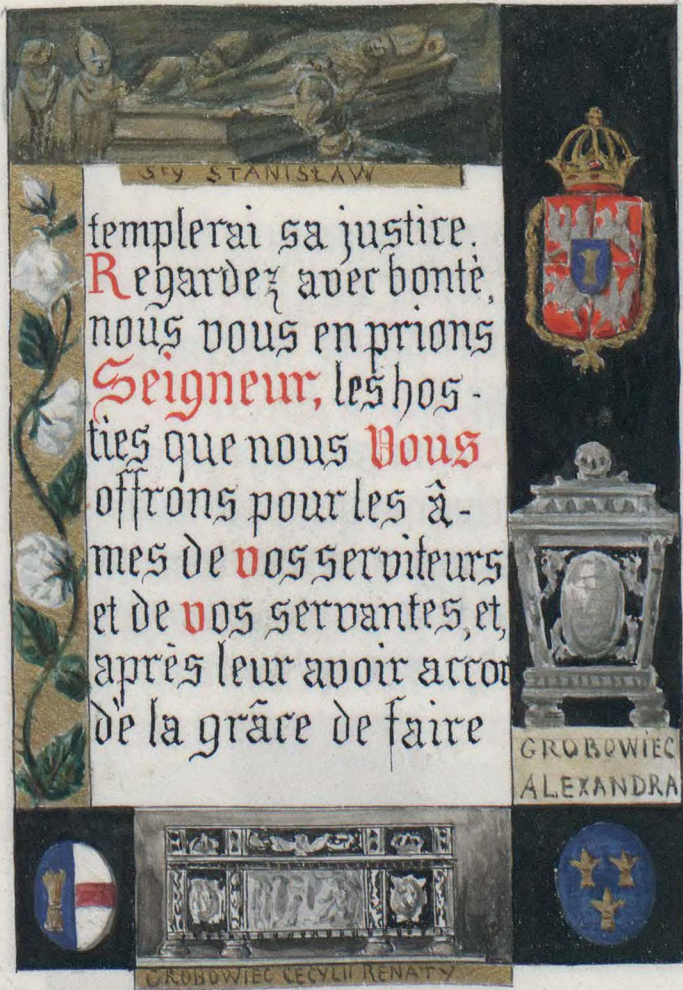 Sty STANISŁAW
templerai sa justice.
Regardez avec bontè,
nous vous en prions
Seigneur, les hos-
ties que nous Vous
offrons pour les â-
mes de vos serviteurs
et de vos servantes, et,
après leur avoir accor
dè la grâce de faire
GROBOWIEC
ALEXANDRA
GROBOWIEC CECYLII RENATY